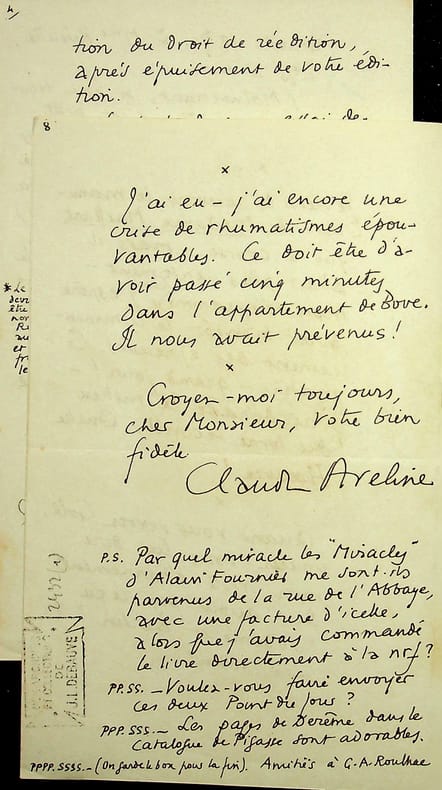 4/
tion du droit de réédition,
après épuisement de votre édi-
tion.
8
×
J'ai eu – j'ai encore une
crise de rhumatismes épou-
vantables. Ce doit être d'a-
voir passé cinq minutes
dans l'appartement de Bove.
Il nous avait prévenus !
×
Croyez-moi toujours,
cher Monsieur, votre bien
fidèle
Claude Aveline
P.S. Par quel miracle les "Miracles"
d'Alain Fournier me sont-ils
parvenus de la rue de l'Abbaye,
avec une facture d'icelle,
alors que j'avais commandé
le livre directement à la nrf ?
PP.SS. – Voulez-vous faire envoyer
ces deux Point du Jour ?
PPP.SSS. – Les pages de Derème dans le
catalogue de Pigasse sont adorables.
PPPP.SSSS. – (On garde le bon pour la fin). Amitiés à G.A.
DE